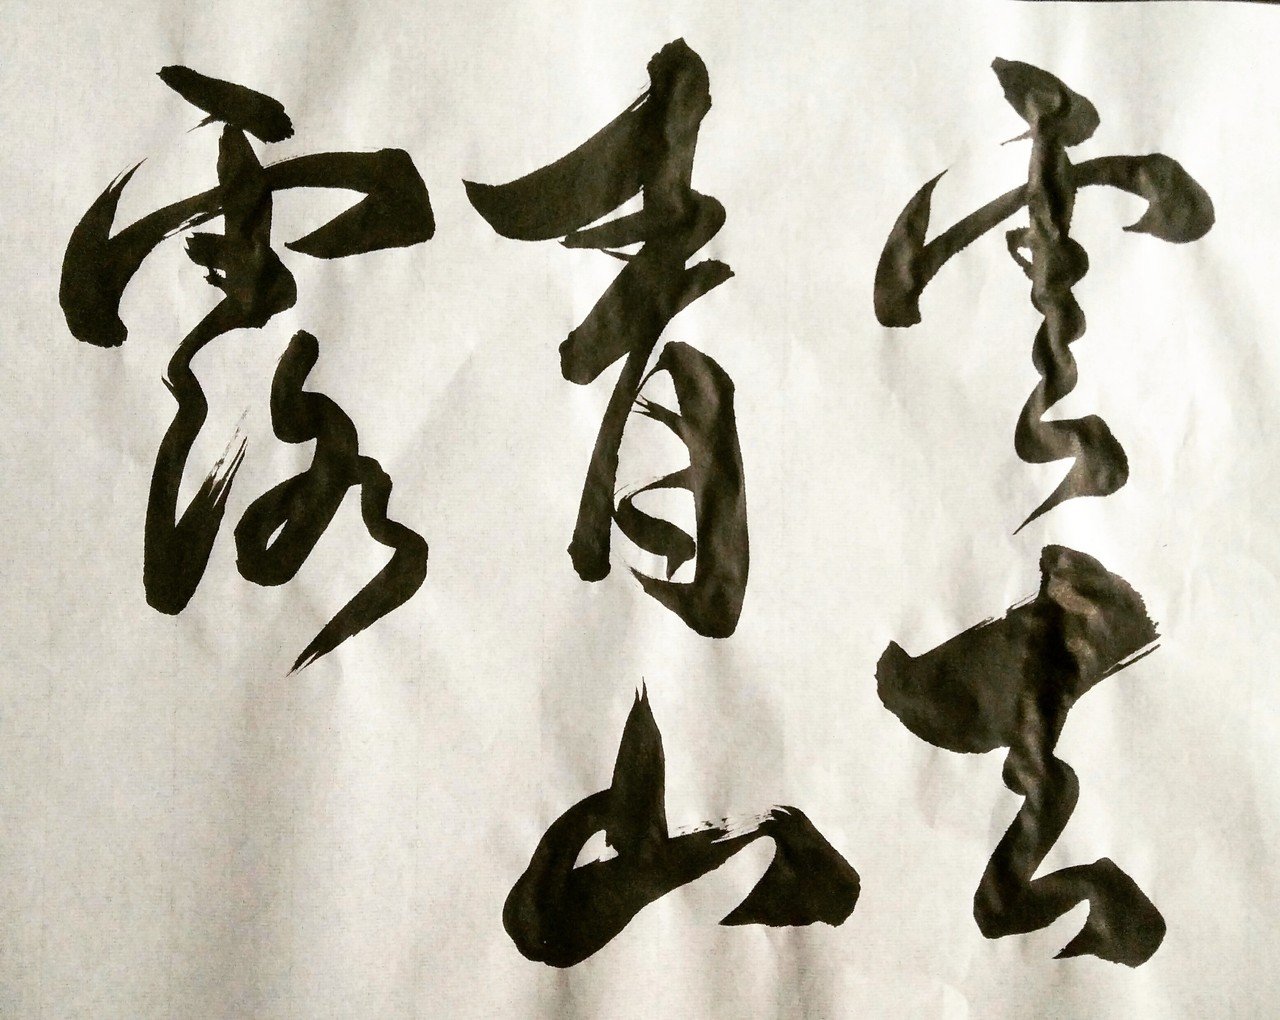 雲去
青山
露